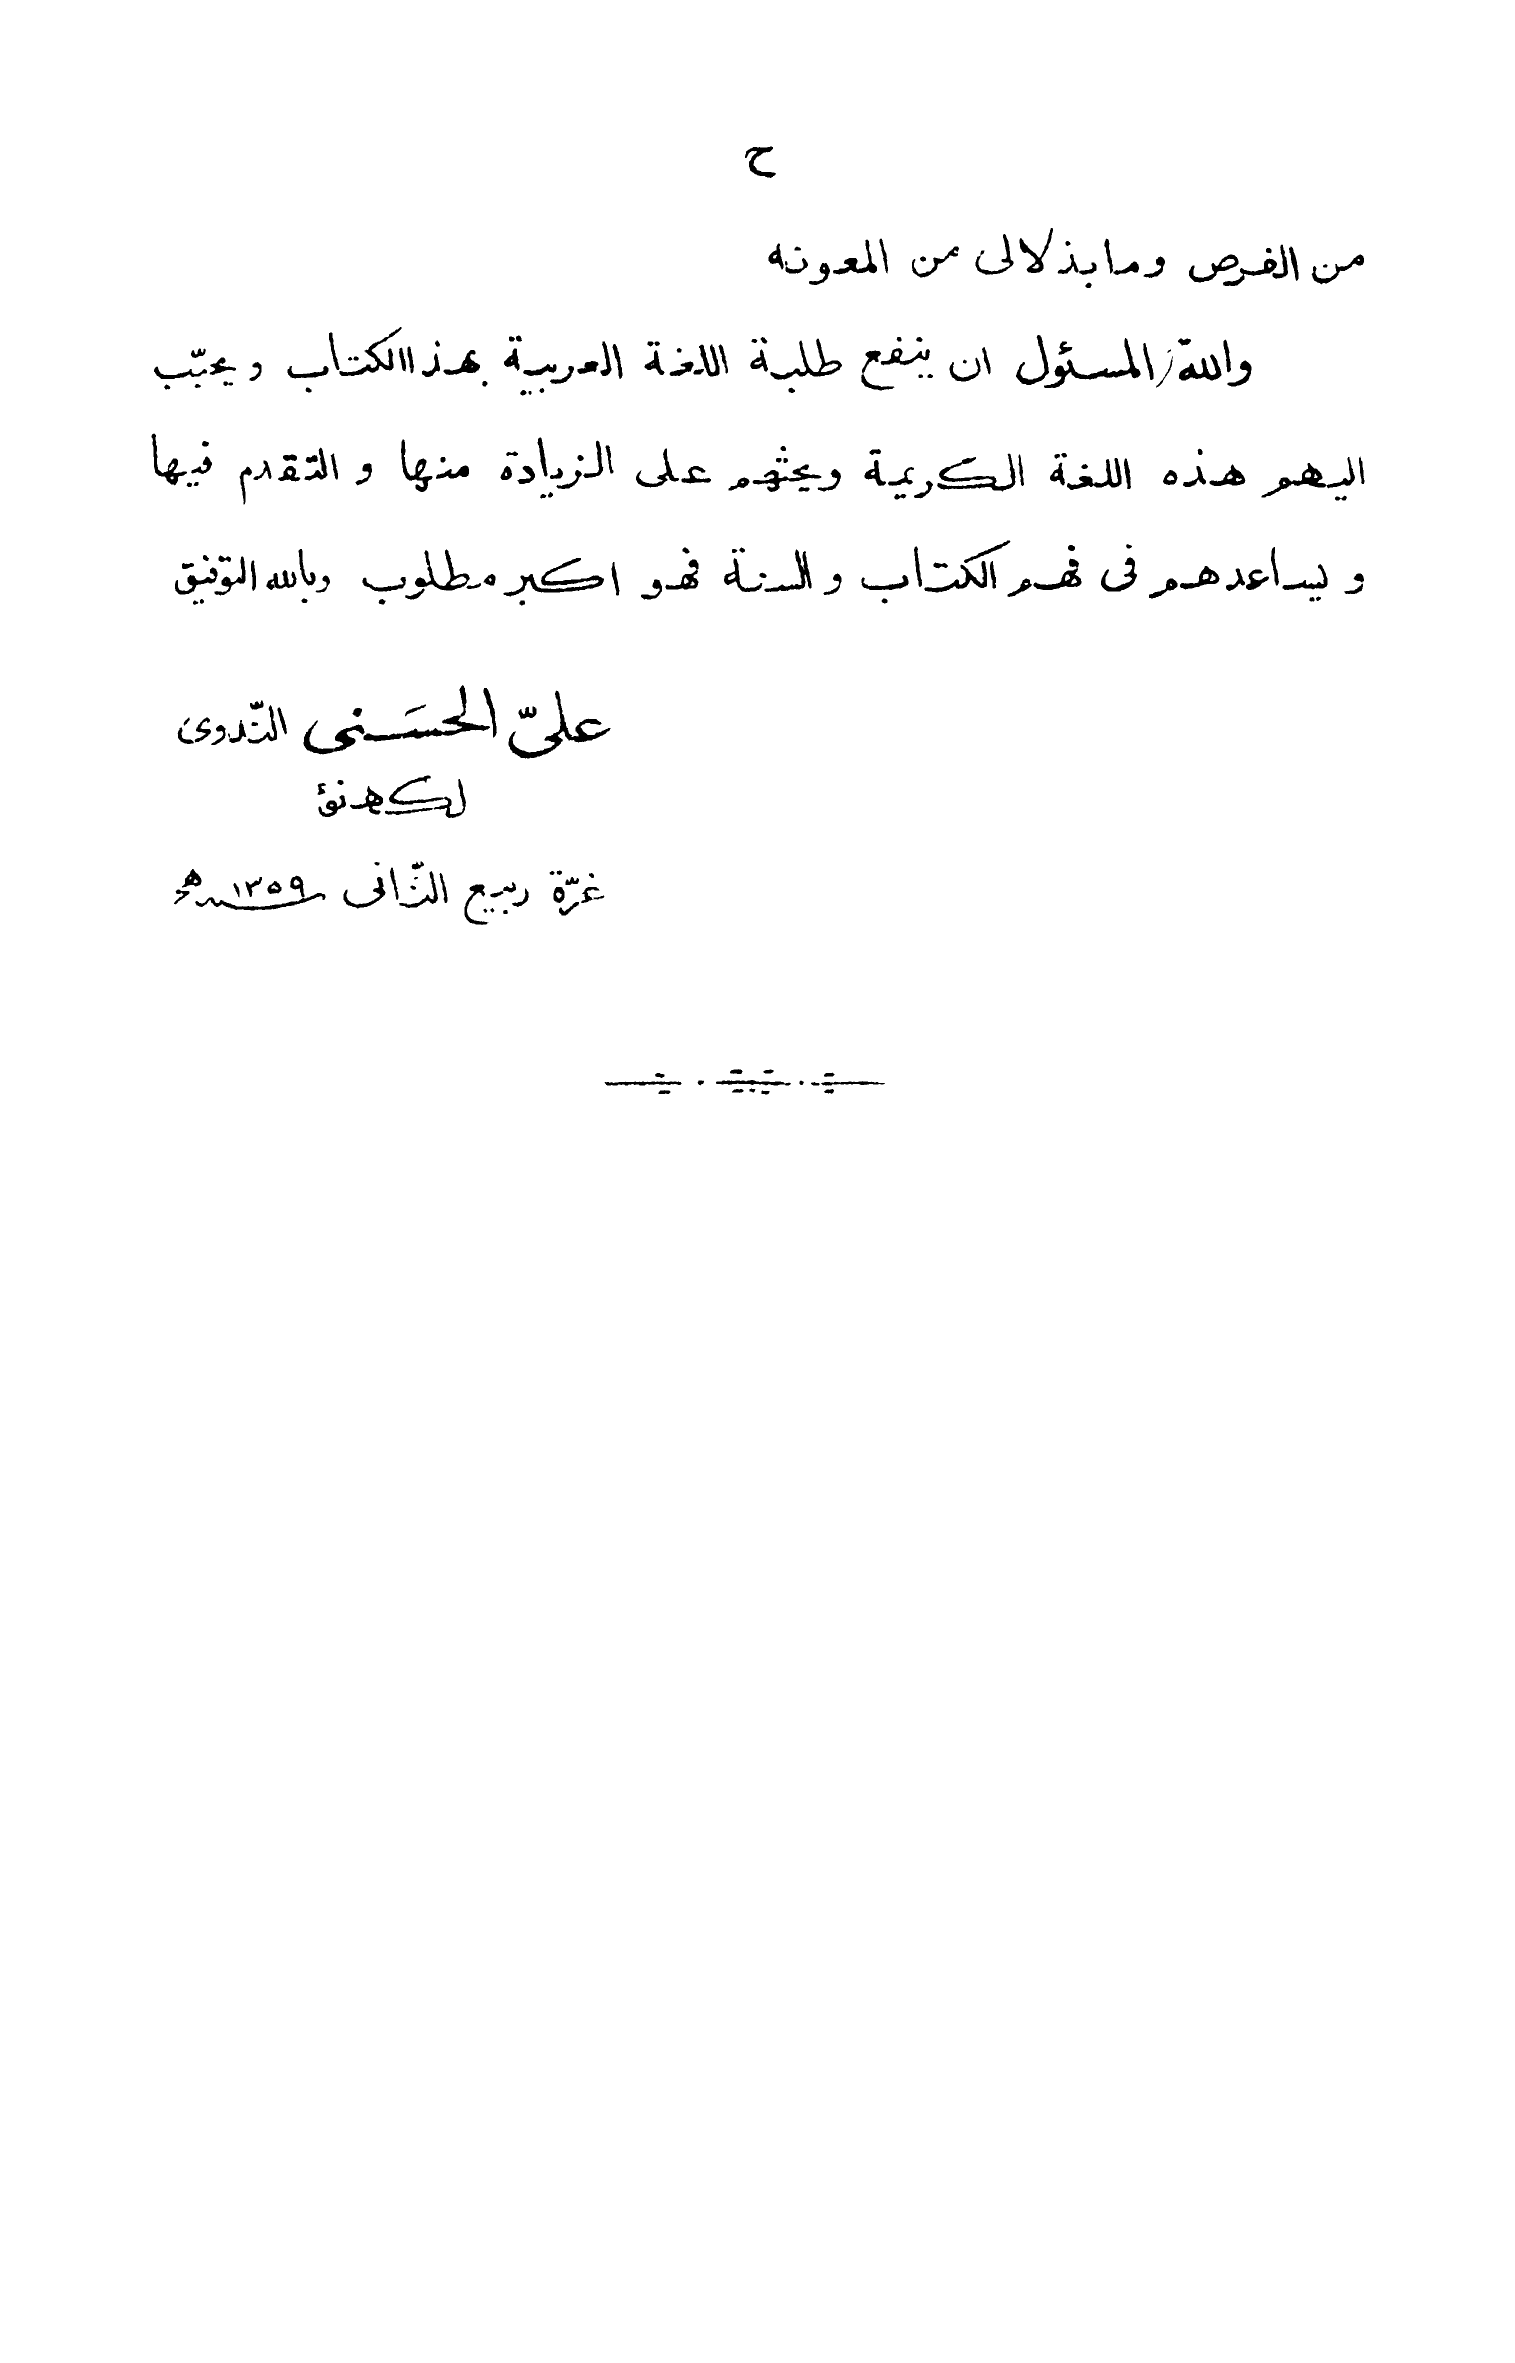 ح
من الفرص وما بذلا لى من المعونه
والله المسئول ان ينفع طلبة اللغة العربية بهذا الكتاب و يحبّب
اليهم هذه اللغة الكريمة ويحثهم على الزيادة منها و التقدم فيها
و يساعدهم فى فهم الكتاب و السنة فهو اكبر مطلوب وبالله التوفيق
علىّ الحسَنى النّدوى
لكهنؤ
غرّة ربيع الثّانى ١٣٥٩ه